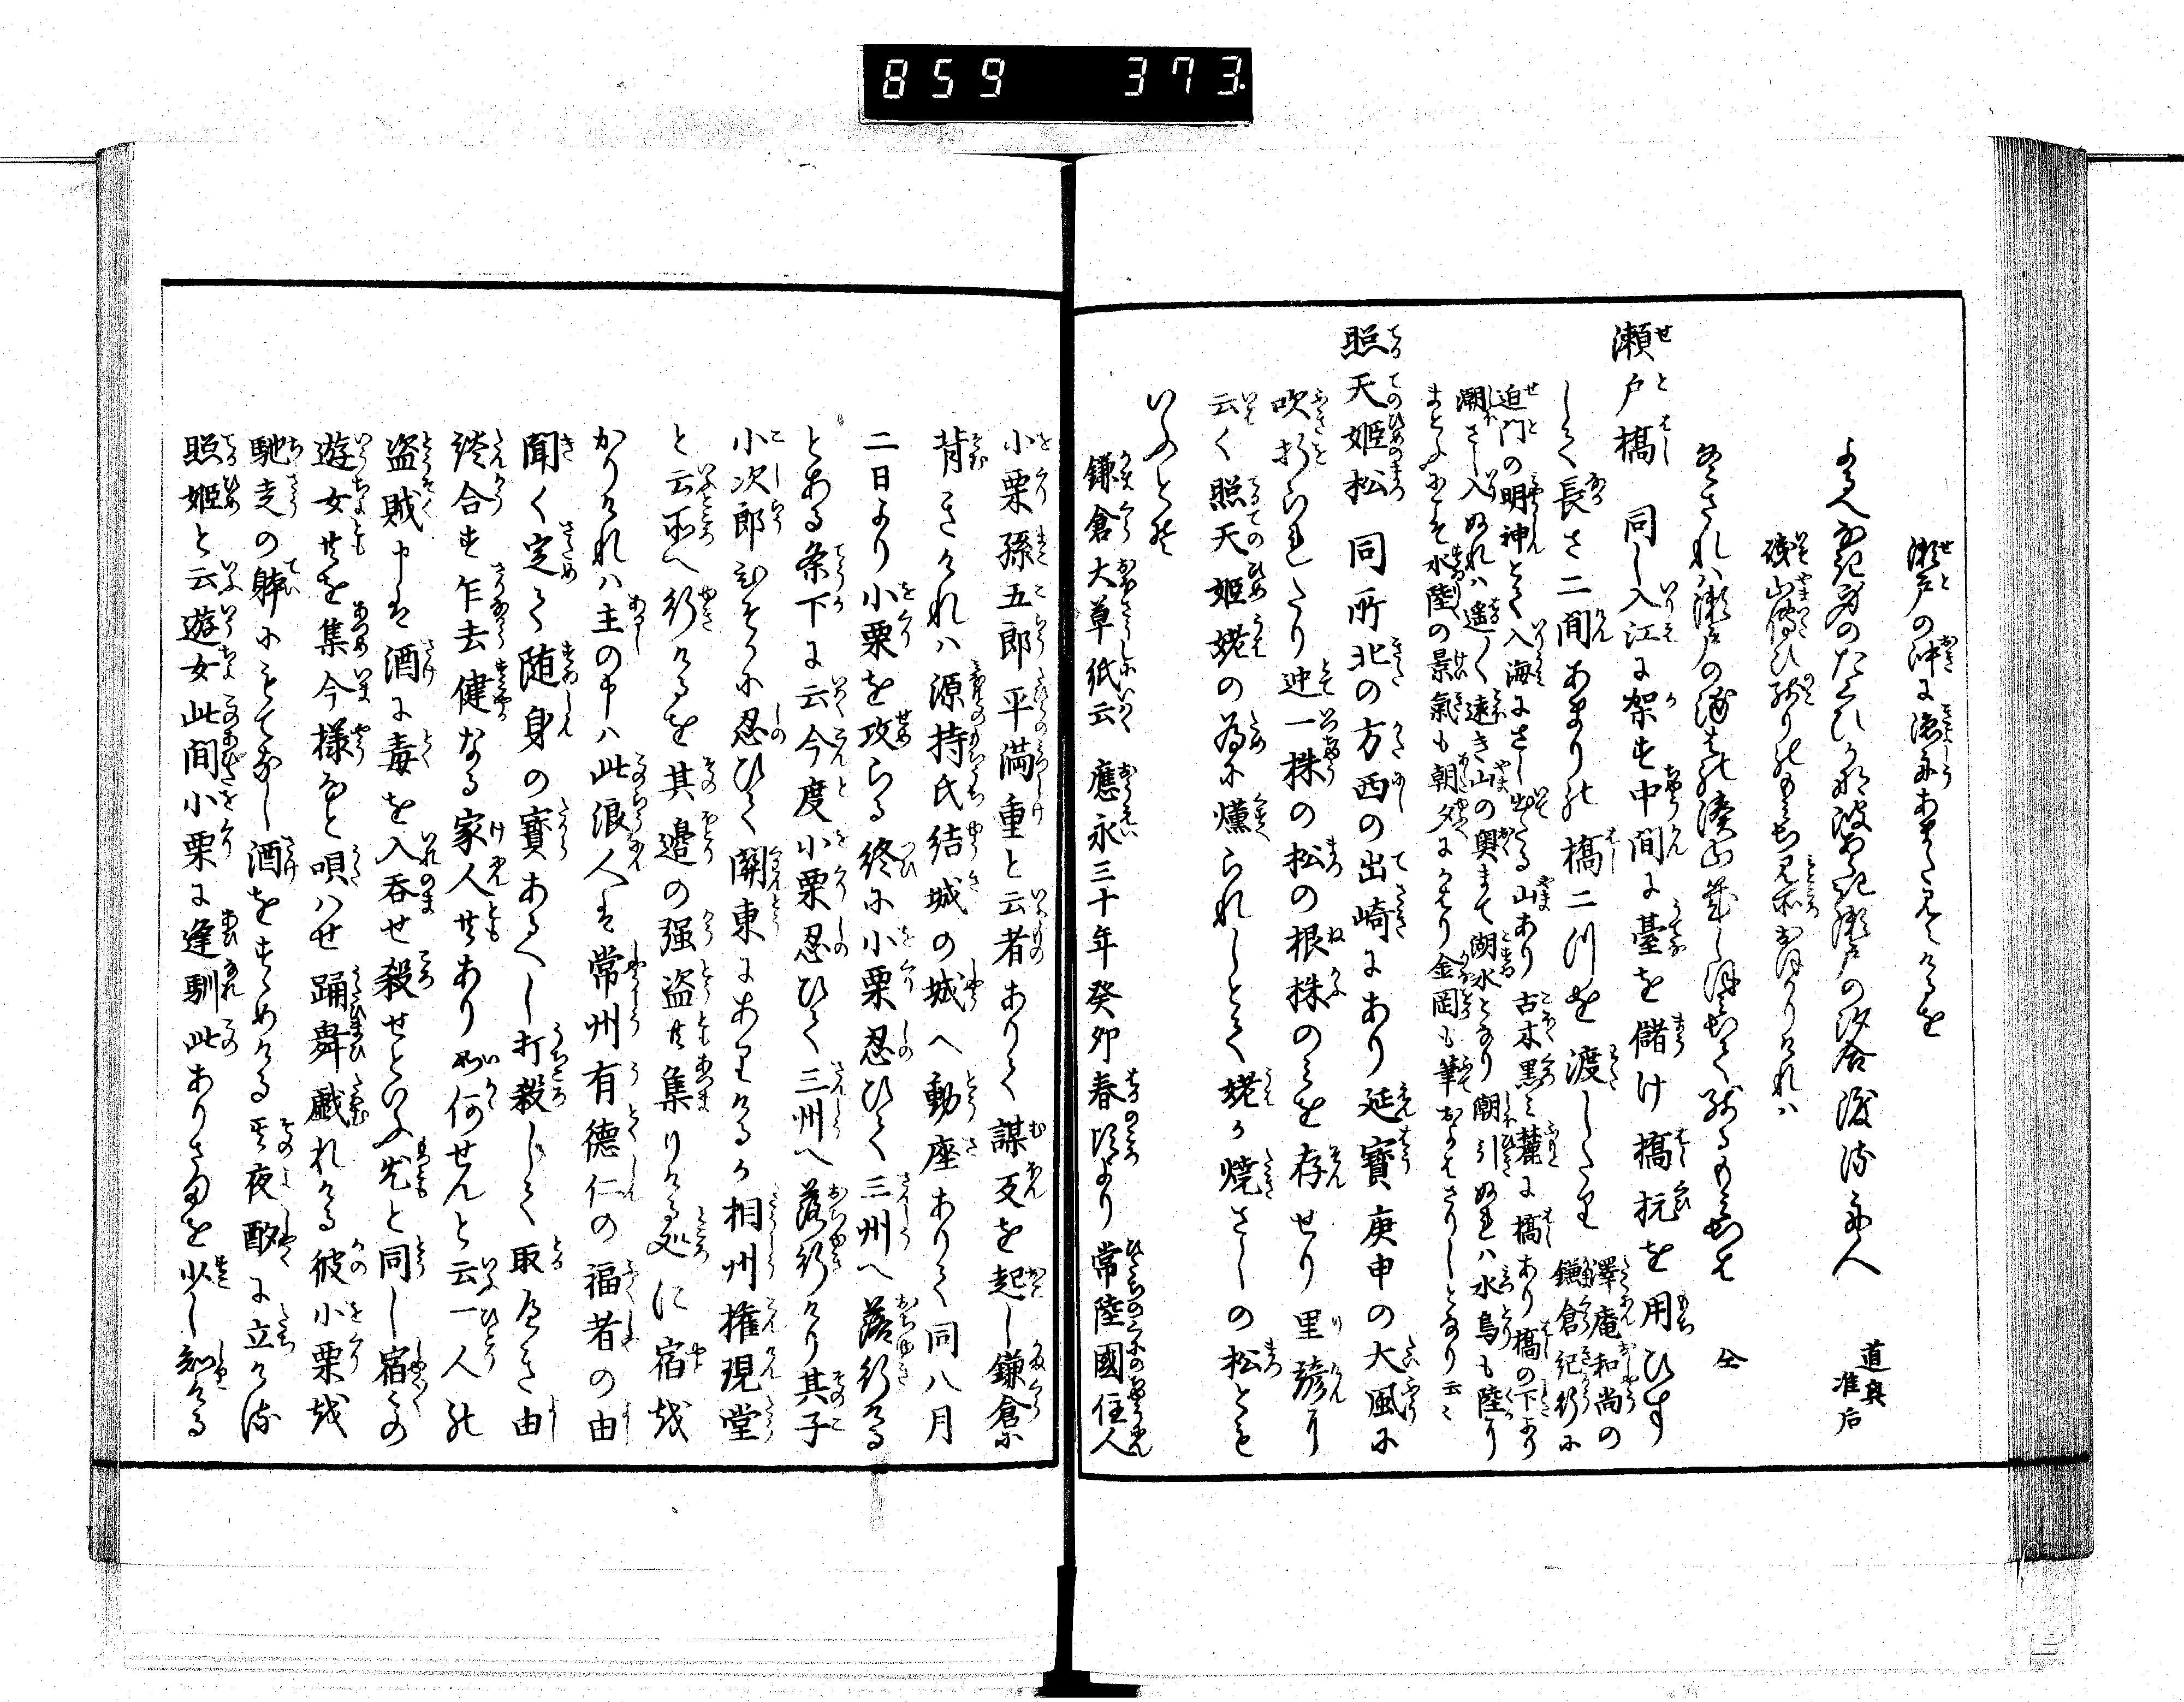 859 373.
瀬戸の沖に漁舟あまた見えけるを
よるへなき身のたくひかな波あらき瀬戸の汐合渡る舟人 道興准后
磯山伝ひ残りのもみち見所おほかりけれハ
冬されハ瀬戸の浦わの湊山幾しほみちて残るもみちそ 仝
瀬戸橋 同し入江に架す中間に臺を儲け橋杭を用ひす
しく長さ二間あまりの橋二川を渡したり 澤庵和尚の鎌倉紀行に
迫門の明神とて入海にさし出たる山あり古木黒ミ麓に橋あり橋の下より
潮さし入ぬれハ遙々遠き山の奥まて湖水となり潮引ぬれハ水鳥も陸り
まとふにこそ水陸の景氣も朝夕にかはり金岡も筆およはさりしとなり云々
照天姫松 同所北の方西の出崎にあり延寶庚申の大風に
吹折られたり迚一株の松の根株のミを存せり里諺に
云く照天姫姥の為に燻られしとて姥か焼さしの松とも
いふとそ
鎌倉大草紙云 應永三十年癸卯春頃より常陸國住人
小栗孫五郎平満重と云者ありて謀叛を起し鎌倉に
背きけれハ源持氏結城の城へ動座ありて同八月
二日より小栗を攻らる終に小栗忍ひて三州へ落行ける
とある条下に云今度小栗忍ひて三州へ落行けり其子
小次郎ひそかに忍ひて關東にありけるか相州権現堂
と云所へ行けるを其邉の强盗共集りける処に宿を
かりけれハ主の申ハ此浪人は常州有徳仁の福者の由
聞く定て随身の寳あるへし打殺して取へき由
談合す乍去健なる家人共あり如何せんと云一人の
盗賊申は酒に毒を入呑せ殺せといふ尤と同し宿々の
遊女共を集今様なと唄ハせ踊舞戯れける彼小栗を
馳走の躰にもてなし酒をすゝめける其夜酌に立ける
照姫と云遊女此間小栗に逢馴此ありさまを少し知ける